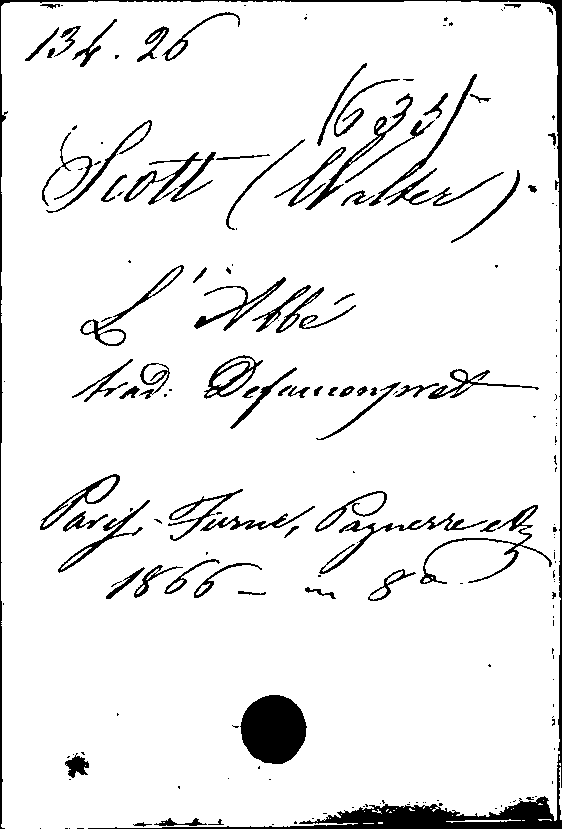 134.26
(633)
Scott (Walter).
L'Abbé
trad: Defauconpret
Paris, - Furne, Pagnerre etc
1866 - in 8°